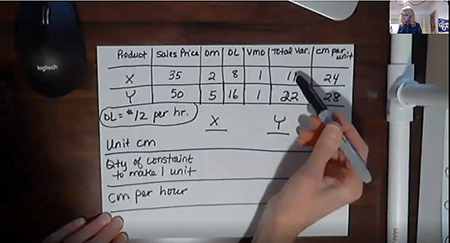 logitech
Product Sales Price DM DL VMO Total Var. CM per unit
X 35 2 8 1 11 24
Y 50 5 16 1 22 28
DL = $12 per hr. X Y
Unit CM
Qty of constraint
to make 1 unit
CM per hour